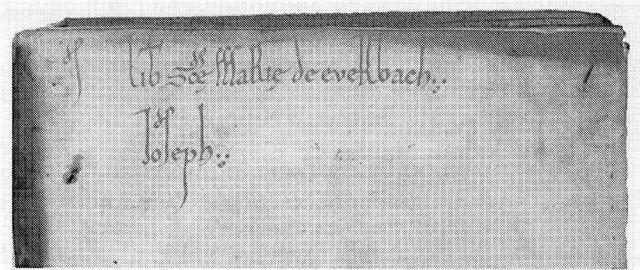 lib scę Marię de everbach
Joseph